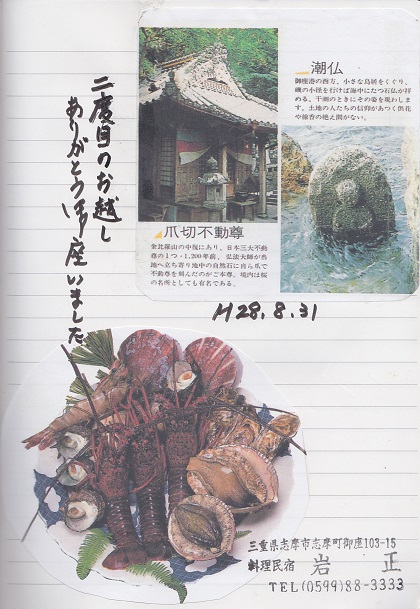 二度目のお越し
ありがとう御座いました。
潮仏
御座港の西方、小さな鳥居をくぐり、
磯の小径を行けば海中にたつ石仏が拝
める。干潮のときにその姿を現わしま
す。土地の人たちの信仰があつく供花
や線香の絶え間がない。
爪切不動尊
金比羅山の中腹にあり、日本三大不動
尊の1つ・1,200年前、弘法大師が当
地へ立ち寄り池中の自然石に自ら爪で
不動尊を刻んだのがご本尊。境内は桜
の名所としても有名である。
H28.8.31
三重県志摩市志摩町御座103-15
料理民宿 岩正
TEL(0599)88-3333